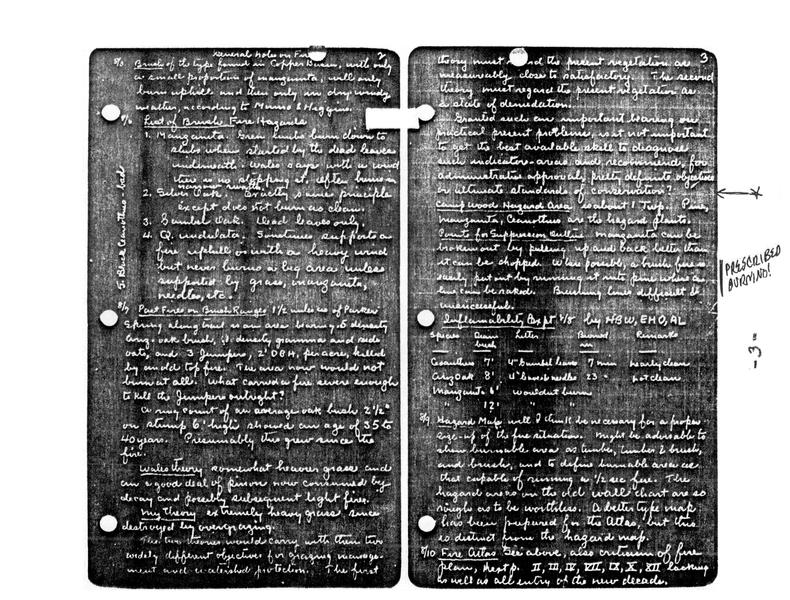 General Notes on Fire 2
8/8. Brush of the type found in Copper Basin, will only
a small proportion of manzanita, will only
burn uphill and then only in dry windy
weather, according to Munro & Higgins.
8/6 List of Brush Fire Hazards
1. Manzanita. Green limbs burn down to
stubs when started by the dead leaves
underneath. Wales says with a wind
there is no stopping it, often burns in
2. Silver Oak. Exactly same principle
except does not burn as clean.
3. Gambel Oak. Dead leaves only.
4. Q. undulata. Sometimes supports a
fire uphill or with a heavy wind
but never burns a big area unless
supported by grass, manzanita,
needles, etc.
5. Black Ceanothus - bad
8/7 Past Fires on Brush Ranges 1 1/2 miles w of Parker
Spring along trail is an area bearing .5 density
Ariz. oak brush, .1 density grammas and side
oats, and 3 Junipers, 2' DBH, per acre, killed
by an old top fire. The area now would not
burn at all. What carried a fire severe enough
to kill the Junipers outright?
A ring count of an average oak bush 2 1/2"
on stump 6' high showed an age of 35 to
40 years. Presumably this grew since the
fire.
Wales theory somewhat heavier grass and
a good deal of pinon now consumed by
decay and possibly subsequent light fires.
My Theory extremely heavy grass since
destroyed by overgrazing.
The two theories would carry with them two
widely different objectives for grazing manage-
ment and watershed protection. The first
3
theory must the present vegetation as
measurably close to satisfactory. The second
theory must regard the present vegetation as
a state of denudation.
Granted such an important bearing on
practical present problems, is it not important
to get the best available skill to diagnose
such indicator-areas and recommend, for
administrative approval, pretty definite objectives
or ultimate standards of conservation?
Campwood Hazard Area is about 1 Twp. Pine,
manzanita, Ceanothus are the hazard plants.
Points for Suppression Bulletin manzanita can be
broken out by pulling up and back better than
it can be chopped. When possible, a brush fire is
easily put out by running it into pine where a
line can be raked. Brushing lines difficult &
unsuccessful.
Inflammability Expt 8/8 by NBW, EHO, AL
Species Green bush Litter Burned Remarks
Ceanothus 7' 4" Gambel leaves 7 min nearly clean
Ariz Oak 8' 4" leaves needles 23 " not clean
Manzanita 6' wouldn't burn
" 12' "
8/9. Hazard Map will I think be necessary for a proper
size-up of the fire situation. Might be advisable to
show burnable area as timber, timber & brush,
and brush, and to define burnable area as
that capable of running a 1/2 sec fire. The
hazard areas on the old wall chart are so
rough as to be worthless. A better type map
has been prepared for the Atlas, but this
is distinct from the hazard map.
8/10 Fire Atlas See above, also criticism of fire
plan, next p. II, III, IV, VII, IX, X, XII lacking
as well as all entry of the new decade.
PRESCRIBED
BURNING!
-3-